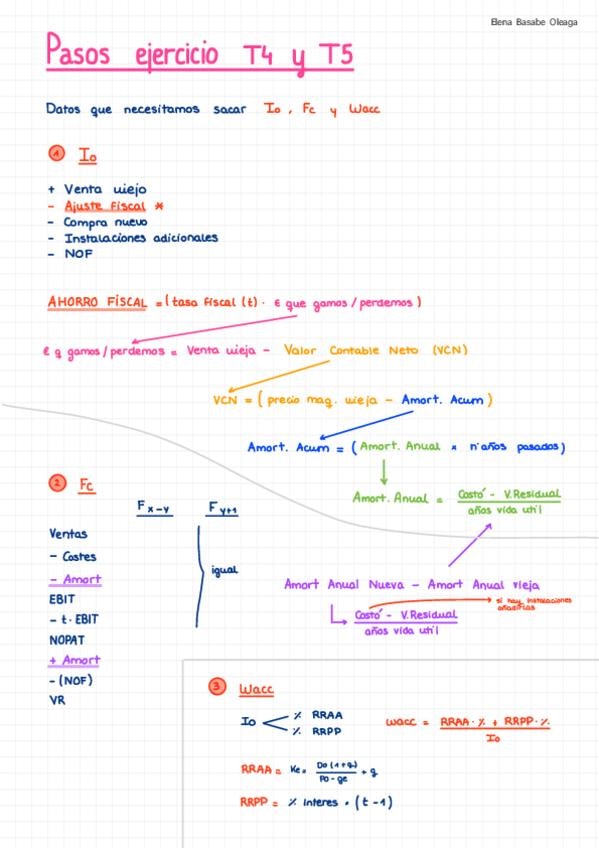 Elena Basabe Oleaga
Pasos ejercicio T4 y T5
Datos que necesitamos sacar Io, Fc y Wacc
1 Io
+ Venta viejo
- Ajuste Fiscal *
- Compra nuevo
- Instalaciones adicionales
- NOF
AHORRO FÍSCAL = (tasa fiscal (t) · € que gamos/perdemos)
€ q gamos/perdemos = Venta vieja - Valor Contable Neto (VCN)
VCN = (precio maq. vieja - Amort. Acum)
Amort. Acum = (Amort. Anual × nº años pasados)
Amort. Anual = Costó - V.Residual
años vida util
2 Fc
F x-y F y+1
Ventas
- Costes
- Amort
EBIT
- t · EBIT
NOPAT
+ Amort
- (NOF)
VR
igual
Amort Anual Nueva - Amort Anual vieja
Costó - V.Residual
años vida util
si hay instalaciones
añadirlas
3 Wacc
Io % RRAA
% RRPP
wacc = RRAA · % + RRPP · %
Io
RRAA = Ke = Do(1+g) + g
Po - ge
RRPP = % interes · (t - 1)